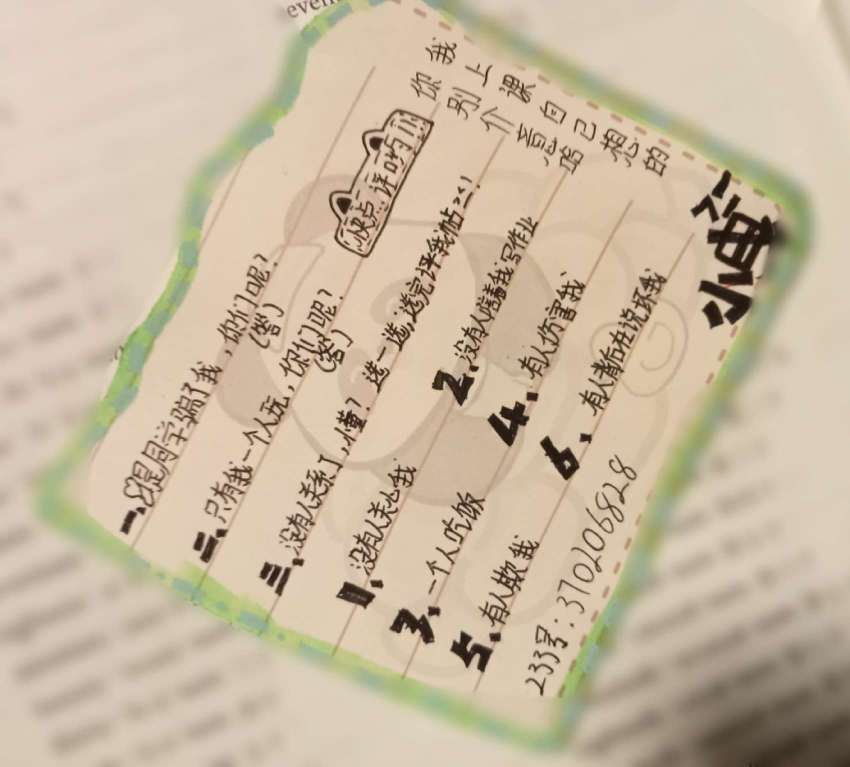 even
我上课自己想的
你别介意哈
快点评哟
一、没是同学骗了我，你们呢？
(答)
二、只有我一个人玩，你们呢？
(答)
三、没有人关系了，懂？选一选，选完评我帖
1、没有人关心我
2、没有人陪着我写作业
3、一个人吃饭
4、有人伤害我
5、有人欺我
6、有人背后在说坏我
233号：370206828